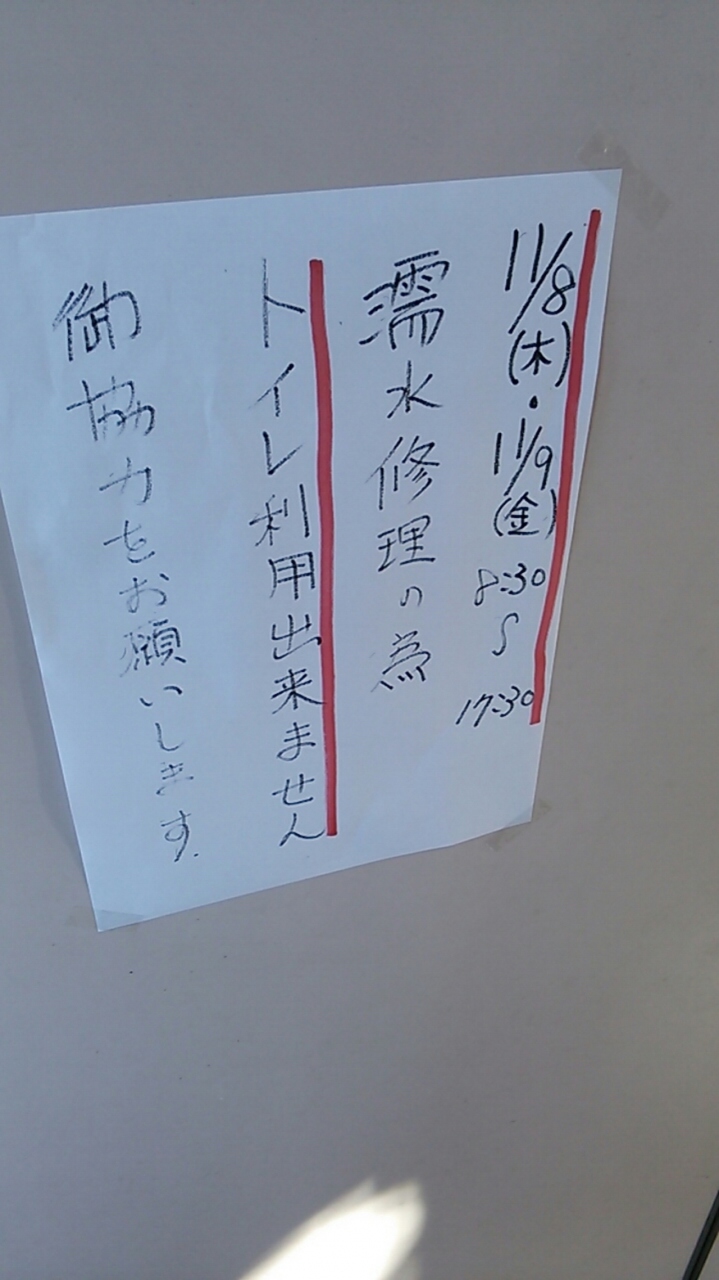 11/8(木)・11/9(金)8:30〜17:30
濡水修理の為
トイレ利用出来ません
御協力をお願いします.